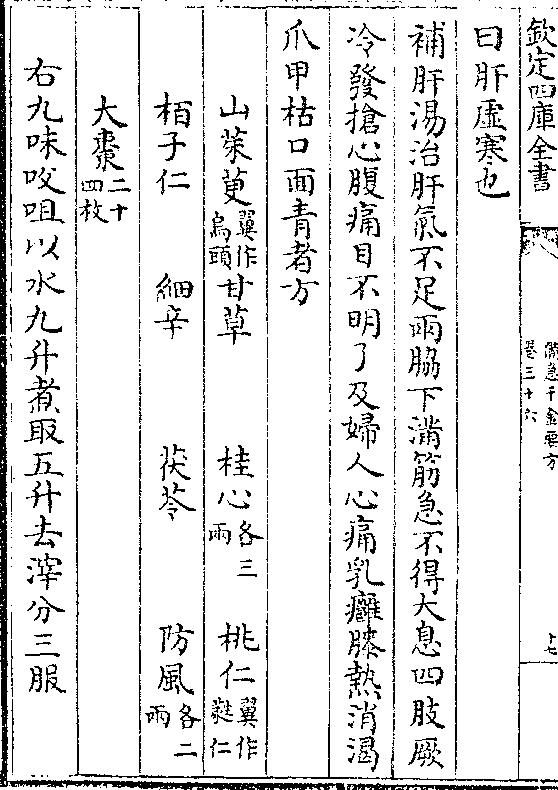 欽定四庫全書
備急千金要方
卷三十六
十七
曰肝虛寒也
補肝湯治肝氣不足兩脇下滿筋急不得大息四肢厥
冷發搶心腹痛目不明了及婦人心痛乳癰膝熱消渴
爪甲枯口面青者方
山茱萸翼作烏頭甘草 桂心各三兩 桃仁翼作蕤仁
栢子仁 細辛 茯苓 防風各二兩
大棗二十四枚
右九味㕮咀以水九升煮取五升去滓分三服